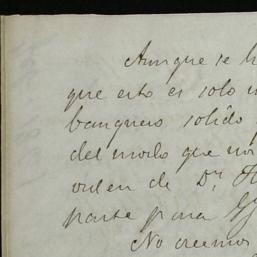 Aunque se h
que esto es solo
banquero solido
del modo que
orden de D.n
parte para
No creemos